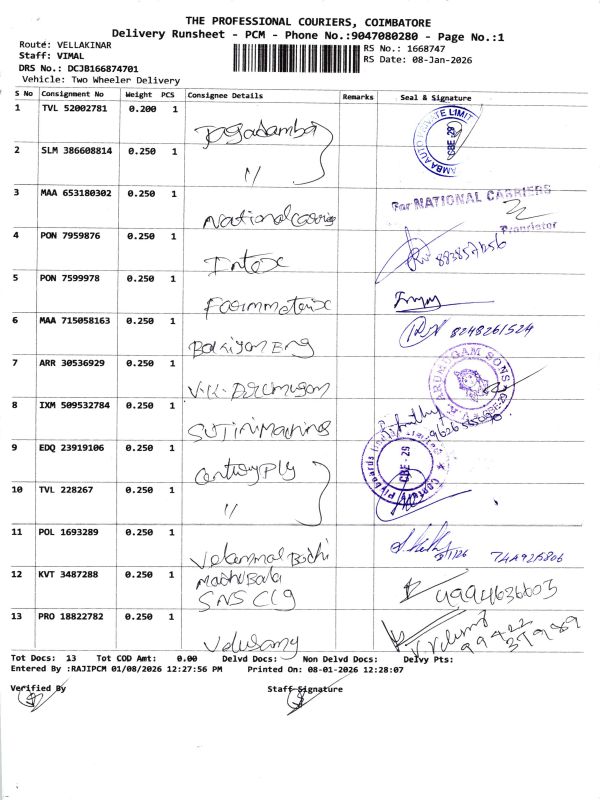 THE PROFESSIONAL COURIERS, COIMBATORE
Delivery Runsheet - PCM - Phone No.:9047080280 - Page No.:1
Route: VELLAKINAR
Staff: VIMAL
DRS No.: DCJB166874701
Vehicle: Two Wheeler Delivery
RS No.: 1668747
RS Date: 08-Jan-2026
S No Consignment No Weight PCS Consignee Details Remarks Seal & Signature
1 TVL 52002781 0.200 1 Jagadamba
AMBA AUTO PRIVATE LIMIT
CBE-29
2 SLM 386608814 0.250 1 〃
3 MAA 653180302 0.250 1 National Carries
For NATIONAL CARRIERS
Proprietor
4 PON 7959876 0.250 1 Intex
5 PON 7599978 0.250 1
6 MAA 715058163 0.250 1 Bakiyam Eng 8248261524
7 ARR 30536929 0.250 1 V.K.
ARUMUGAM SONS
8 IXM 509532784 0.250 1
9 EDQ 23919106 0.250 1 Century Ply
CBE-29
10 TVL 228267 0.250 1 〃
11 POL 1693289 0.250 1 Velammal Bodhi
12 KVT 3487288 0.250 1
SNS Clg 4994636603
13 PRO 18822782 0.250 1 Velusamy
99422
39989
Tot Docs: 13 Tot COD Amt: 0.00 Delvd Docs: Non Delvd Docs: Delvy Pts:
Entered By :RAJIPCM 01/08/2026 12:27:56 PM Printed On: 08-01-2026 12:28:07
Verified By Staff Signature